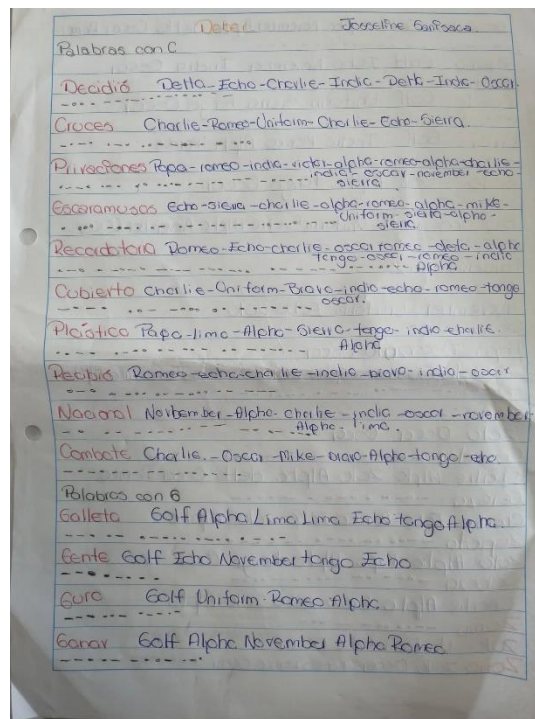 Deber Josseline
Palabras con C
Decidió Delta-Echo-Charlie-India-Delta-India-Oscar.
Cruces Charlie-Romeo-Uniform-Charlie-Echo-Sierra.
Privaciones Papa-romeo-india-victor-alpha-romeo-alpha-charlie-
india-oscar-november-echo-
sierra.
Escaramusas Echo-sierra-charlie-alpha-romeo-alpha-mike-
Uniform-sierra-alpha-
sierra
Recordatoria Romeo-Echo-charlie-oscar romeo-delta-alpha
tango-oscar-romeo-india
Alpha
Cubierto Charlie-Uniform-Bravo-india-echo-romeo-tango
oscar.
Plástica Papa-lima-Alpha-Sierra-tango-india-charlie.
Alpha
Recibió Romeo-echo-charlie-india-bravo-india-oscar
Nacional Norbember-Alpha-charlie-india-oscar-november-
Alpha-lima.
Combate Charlie-Oscar-Mike-bravo-Alpha-tango-echo.
Palabras con G
Galleta Golf Alpha Lima Lima Echo tango Alpha.
Gente Golf Echo November tango Echo
Gura Golf Uniform-Romeo Alpha.
Ganar Golf Alpha November Alpha Romeo